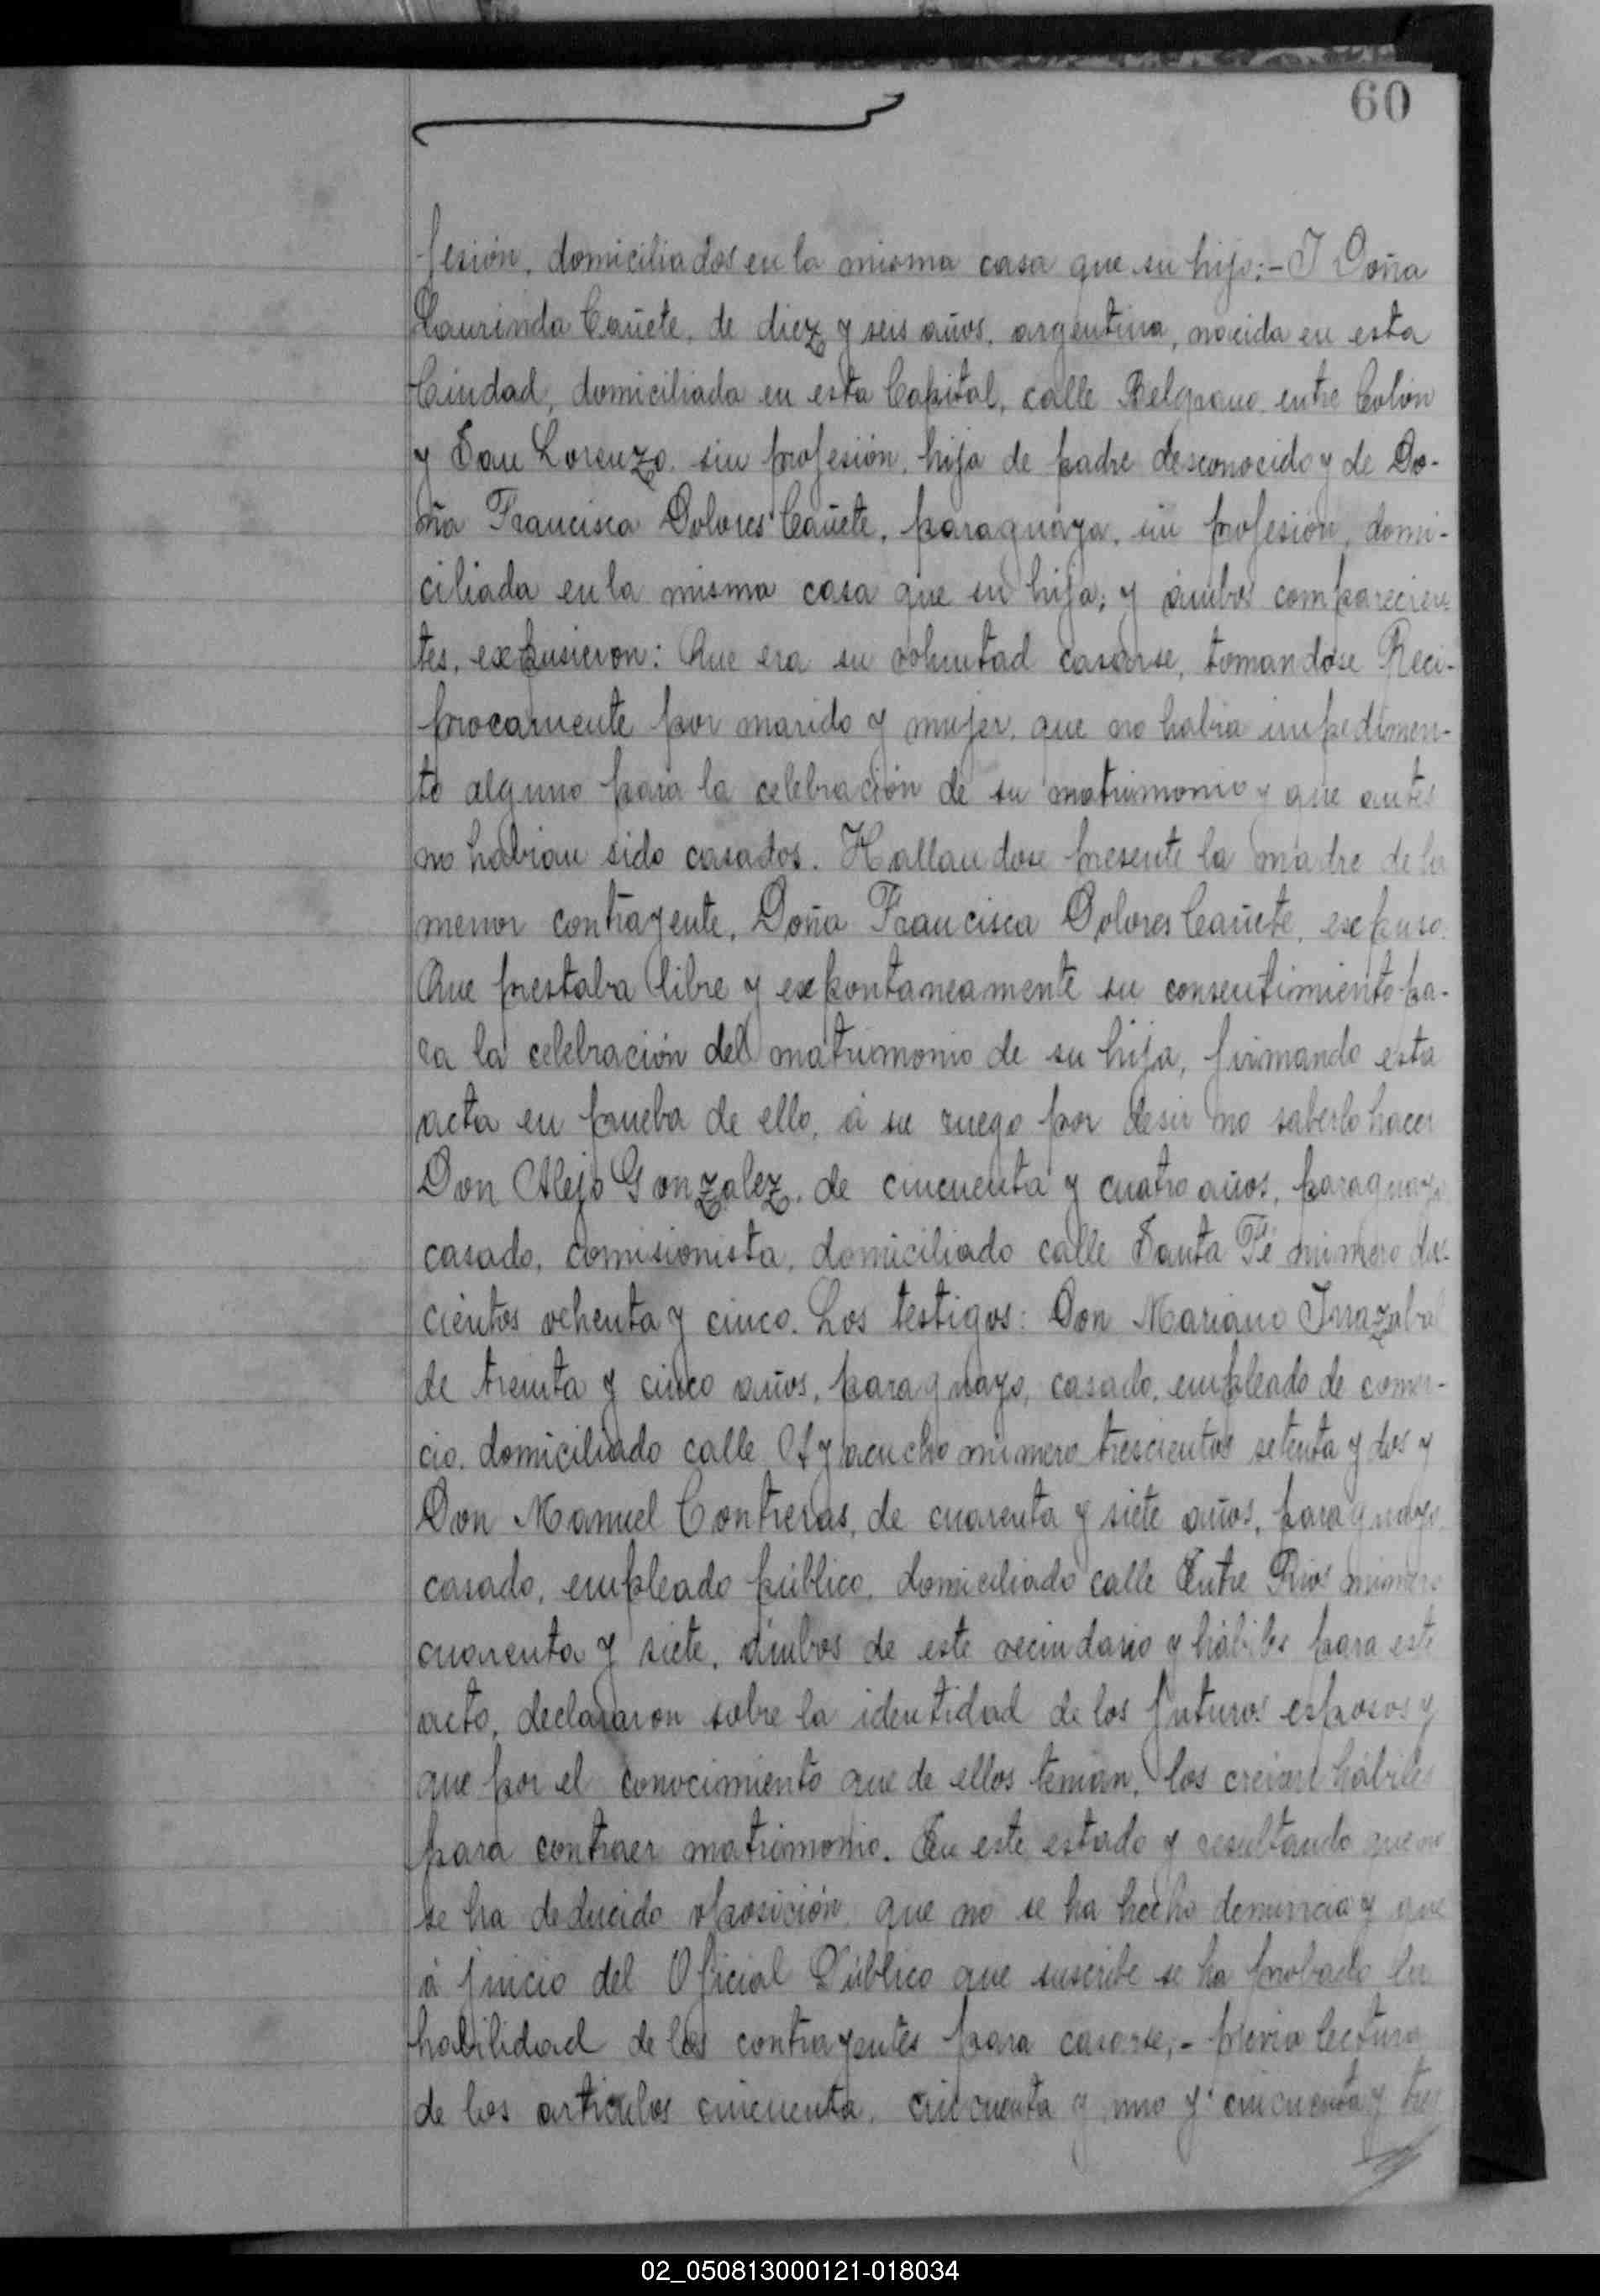 60
fesión, domiciliados en la misma casa que su hijo;- I Doña
Laurinda Cañete, de diez y seis años, argentina, nacida en esta
Ciudad, domiciliada en esta Capital, calle Belgrano entre Colón
y San Lorenzo, sin profesión, hija de padre desconocido y de Do-
ña Francisca Dolores Cañete, paraguaya, sin profesión, domi-
ciliada en la misma casa que su hija; y ámbos comparecien
tes, expusieron: Que era su voluntad casarse, tomandose Reci-
procamente por marido y mujer, que no habia impedimen-
to alguno para la celebración de su matrimonio y que antes
no habian sido casados. Hallandose presente la madre de la
menor contrayente, Doña Francisca Dolores Cañete, expuso.
Que prestaba libre y expontaneamente su consentimiento pa-
ra la celebración del matrimonio de su hija, firmando esta
acta en prueba de ello, á su ruego por desir no saberlo hacer
Don Alejo Gonzalez, de cincuenta y cuatro años, paraguayo
casado, comisionista, domiciliado calle Santa Fé número dos-
cientos ochenta y cinco. Los testigos: Don Mariano Irrazabal
de treinta y cinco años, paraguayo, casado, empleado de comer-
cio, domiciliado calle Ayacucho número trescientos setenta y dos y
Don Manuel Contreras, de cuarenta y siete años, paraguayo
casado, empleado público, domiciliado calle Entre Rios número
cuarenta y siete, ámbos de este vecindario y hábiles para este
acto, declararon sobre la identidad de los futuros esposos y
que por el conocimiento que de ellos tenian, los creian hábiles
para contraer matrimonio. En este estado y resultando que no
se ha deducido oposición, que no se ha hecho denuncia y que
á juicio del Oficial Público que suscribe se ha probado la
habilidad de los contrayentes para casarse;- previa lectura
de los articulos cincuenta, cincuenta y uno y cincuenta y tres
02_050813000121-018034